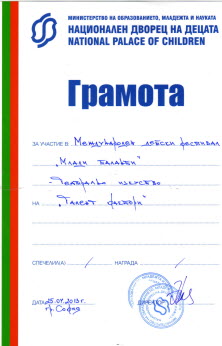 МИНИСТЕРСТВО НА ОБРАЗОВАНИЕТО, МЛАДЕЖТА И НАУКАТА
НАЦИОНАЛЕН ДВОРЕЦ НА ДЕЦАТА
NATIONAL PALACE OF CHILDREN
Грамота
ЗА УЧАСТИЕ В Международен детски фестивал
„Млади таланти"
- Театрално изкуство
НА „Талант фактори"
СПЕЧЕЛИЛ(А) / НАГРАДА /
ДАТА 25.04.2013 г.
гр. София
ДИРЕКТОР